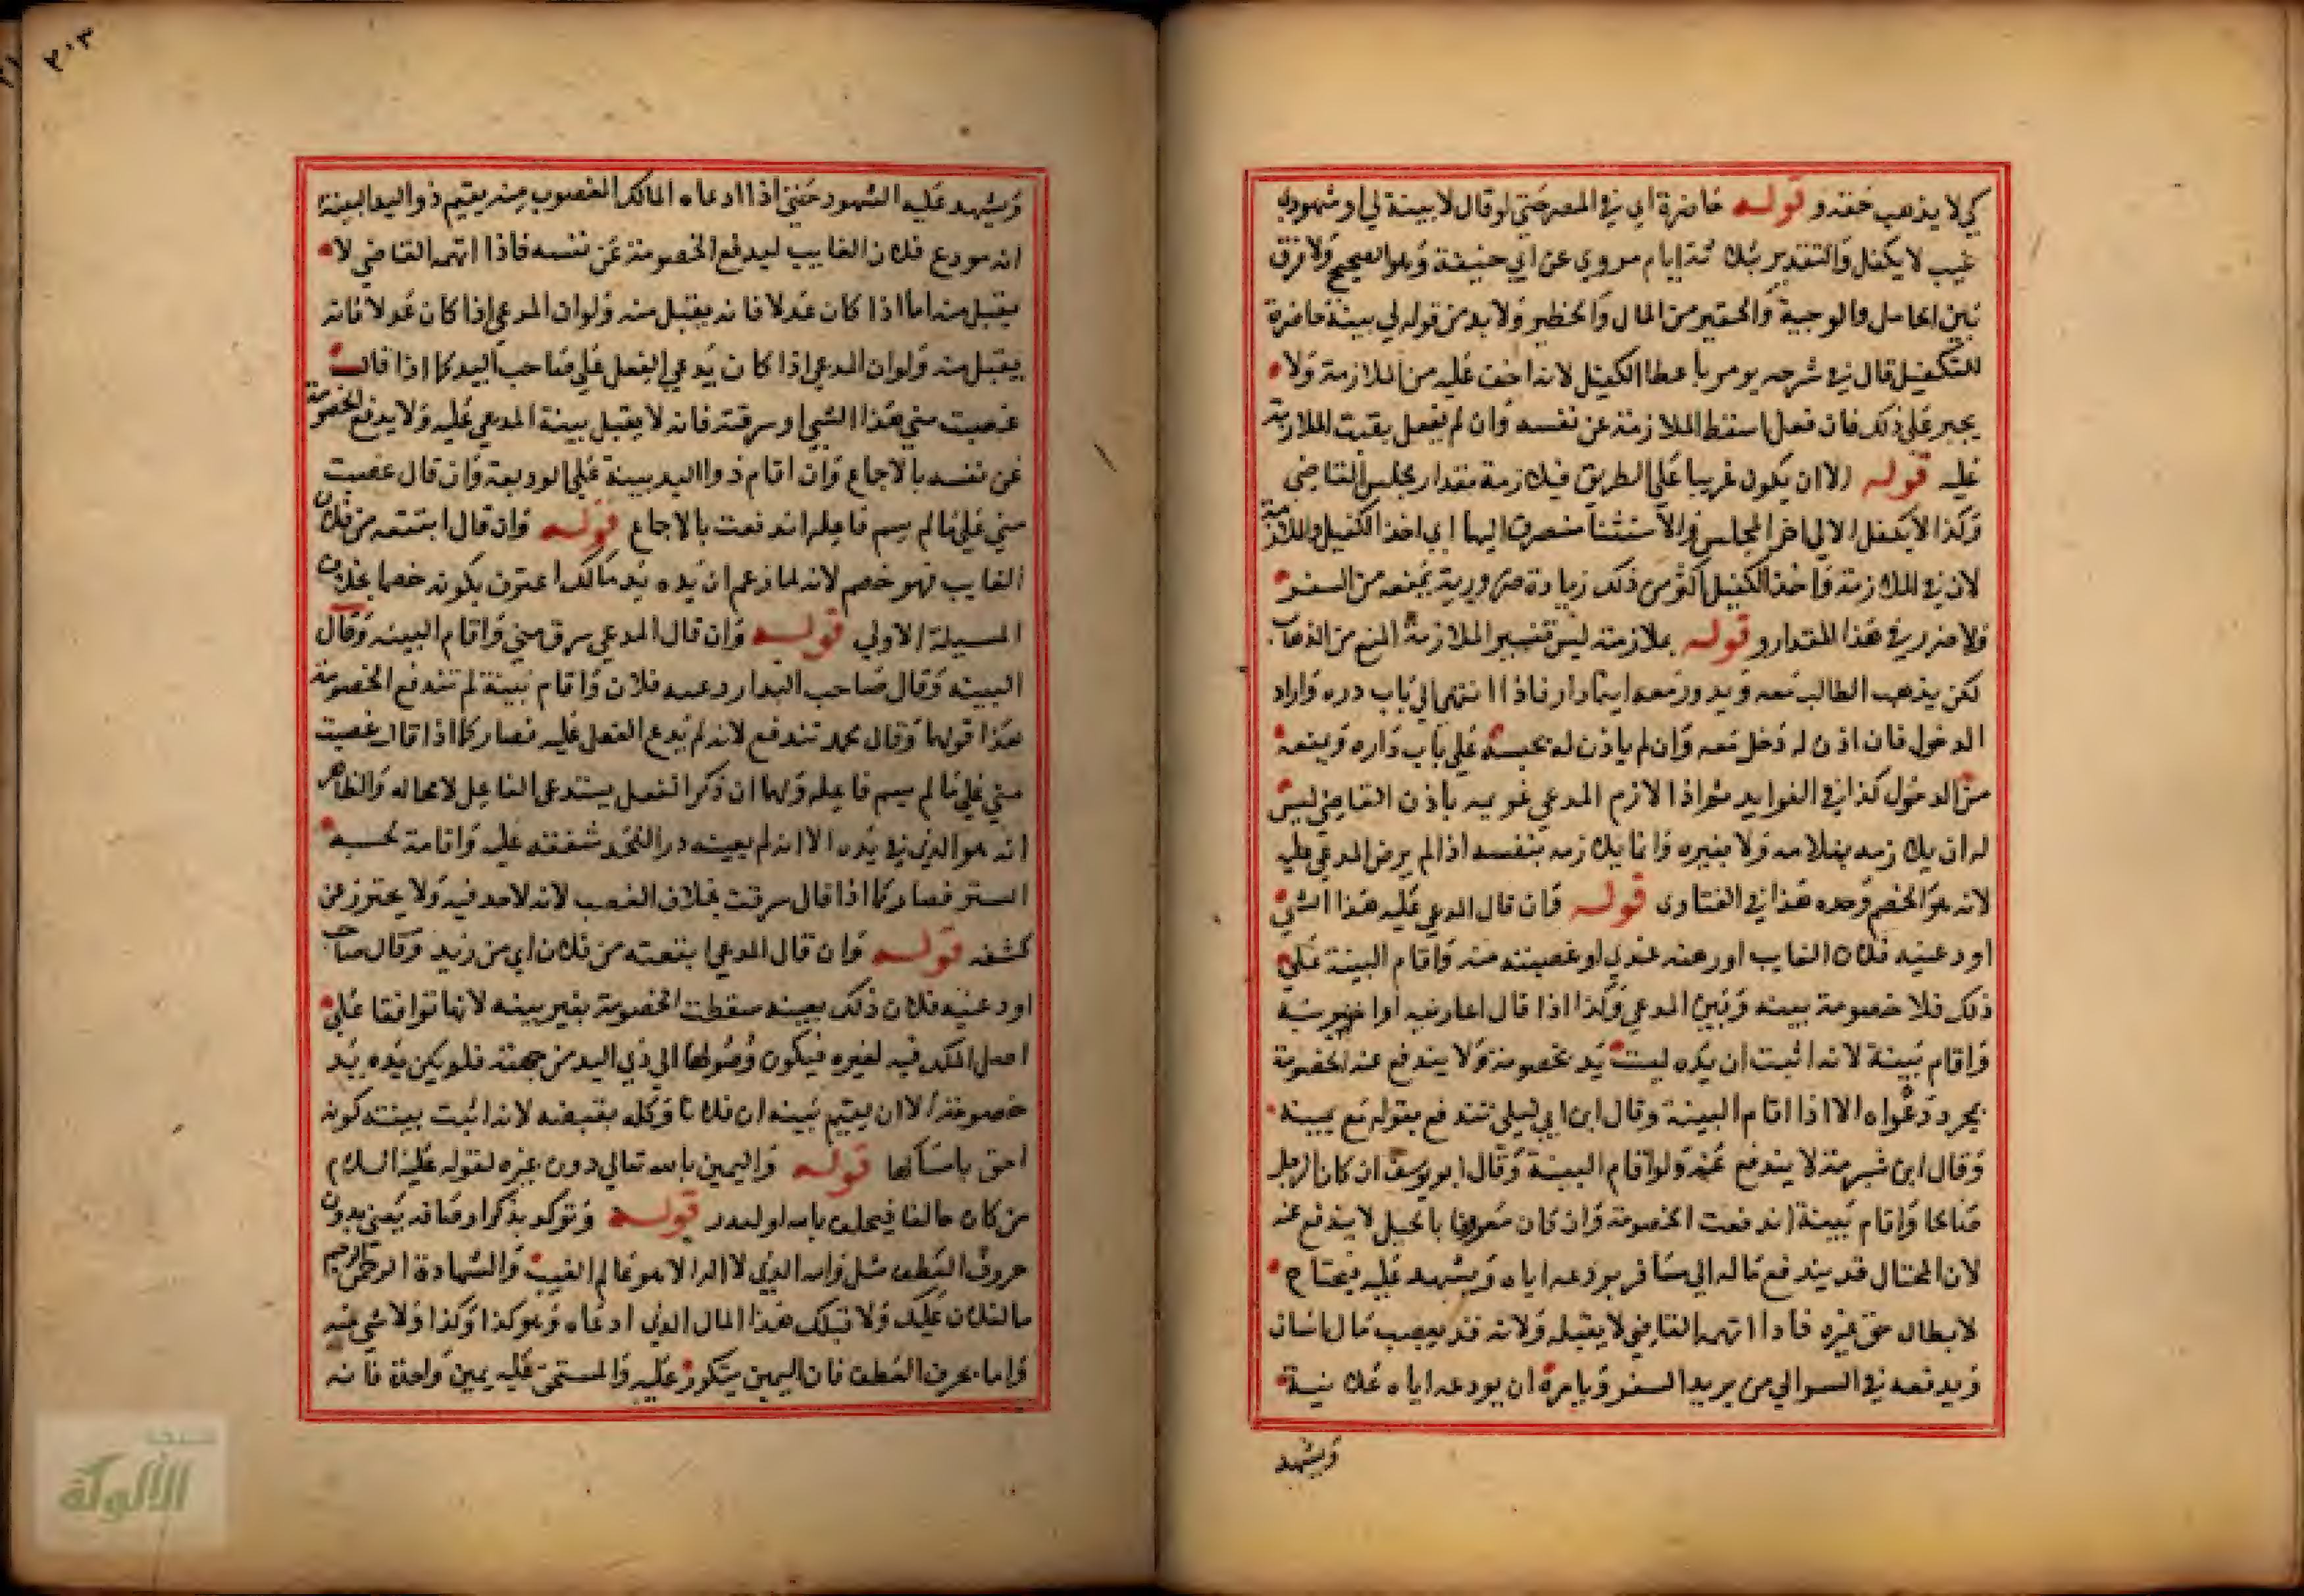 كي لا يذهب حقه و قوله حاضرة اي في المصر حتي لو قال لا بينة لي او شهودي
غيب لا يكفل والتقدير بثلاثة ايام مروي عن ابي حنيفة وهو الصحيح ولا فرق
بين الخامل والوجيه والحقير من المال والخطير ولا بد من قوله لي بينة حاضرة
للتكفيل قال في شرحه يومر باعطا الكفيل لانه اخف عليه من الملازمة ولا
يجبر علي ذلك فان فعل اسقط الملازمة عن نفسه وان لم يفعل بقيت الملازمة
عليه قوله الا ان يكون غريبا علي الطريق فيلازمه مقدار مجلس القاضي
وكذا لا يكفل الا لي اخر المجلس والاستثنا منصرف اليهما اي اخذ الكفيل والملازمة
لان في الملازمة واخذ الكفيل اكثر من ذلك زيادة ضرورية بمنعه من السفر
ولا ضرر في هذا المقدار و قوله بملازمته ليس تفسير الملازمة المنع من الذهاب
لكن يذهب الطالب معه ويدور معه اينما دار فاذا انتهي الي باب دره واراد
الدخول فان اذن له دخل معه وان لم ياذن له يحبسه علي باب داره ويمنعه
من الدخول كذا في الفوايد ثم اذا لازم المدعي غريمه باذن القاضي ليس
له ان يلازمه بغلامه ولا بغيره وانما يلازمه بنفسه اذا لم يرض المدعي عليه
لانه هو الخصم وحده هذا في الفتاوى قوله فان قال المدعي عليه هذا الشي
اودعنيه فلان الغايب اورهنه عندي او غصبته منه واقام البينة علي
ذلك فلا خصومة بينه وبين المدعي وكذا اذا قال اعارنيه او
واقام بينة لانه اثبت ان يده ليست يد خصومة ولا يندفع عنه الخصومة
بمجرد دعواه الا اذا اقام البينة وقال ابن ابي ليلي تندفع بقوله مع يمينه
وقال ابن شبرمة لا يندفع عنه ولو اقام البينة وقال ابو يوسف ان كان الرجل
صالحا واقام بينة اندفعت الخصومة وان كان معروفا بالحيل لا يندفع عنه
لان المحتال قد يندفع ماله الي مسافر يودعه اياه ويشهد عليه فيحتاج
لابطال حق غيره فاذا اتهمه القاضي لا يقبله ولانه قد يغصب مال انسان
ويدفعه في السر الي من يريد السفر ويامره ان يودعه اياه علانية
ويشهد
٢٠٣
ويشهد عليه الشهود حتي اذا ادعاه المالك المغصوب منه يقيم ذو اليد البينة
انه مودع فلان الغايب ليدفع الخصومة عن نفسه فاذا اتهمه القاضي لا
يقبل منه اما اذا كان عدلا فانه يقبل منه ولو ان المدعي اذا كان عدلا فانه
يقبل منه ولو ان المدعي اذا كان يدعي الفعل علي صاحب اليد كما اذا قال
غصبت مني هذا الشي او سرقته فانه لا يقبل بينة المدعي عليه ولا يدفع الخصومة
عن نفسه بالاجماع وان اقام ذو اليد بينة علي الوديعة وان قال غصبت
مني علي ما لم يسم فاعله اندفعت بالاجماع قوله وان قال ابتعته من فلان
الغايب فهو خصم لانه لما زعم ان يده يد مالك اعترف بكونه خصما بخلاف
المسيلة الاولي قوله وان قال المدعي سرق مني واقام البينه وقال
البينه وقال صاحب اليد اودعنيه فلان واقام بينة لم تندفع الخصومة
هذا قولهما وقال محمد تندفع لانه لم يدع الفعل عليه فصار كما اذا قال غصبت
مني علي ما لم يسم فاعله ولهما ان ذكر الفعل يستدعي الفاعل لا محاله والظاهر
انه هو الذي في يده الا انه لم يعينه درا للحد شفقته عليه واقامة لحسبه
الستر فصار كما اذا قال سرقت بخلاف الغصب لانه لا حد فيه ولا يحترز عن
كشفه قوله وان قال المدعي ابتعته من فلان اي من زيد وقال صاحب
اودعنيه فلان ذلك بعينه سقطت الخصومة بغير بينه لانهما توافقا علي
اصل الملك فيه لغيره فيكون وصولها الي ذي اليد من جهته فلم يكن يده يد
خصومة الا ان يقيم بينه ان فلانا وكله بقبضه لانه اثبت ببينته كونه
احق بامساكها قوله واليمين بالله تعالي دون غيره لقوله عليه السلام
من كان حالفا فيحلف بالله او ليذر قوله وتوكد بذكر اوصافه يعني بدون
حروف العطف مثل والله الذي لا اله الا هو عالم الغيب والشهادة الرحمن الرحيم
ما لفلان عليك ولا قبلك هذا المال الذي ادعاه وهو كذا وكذا ولا شي منه
واما بحرف العطف فان اليمين يتكرر عليه والمستحق عليه يمين واحدة فانه
الألوكة